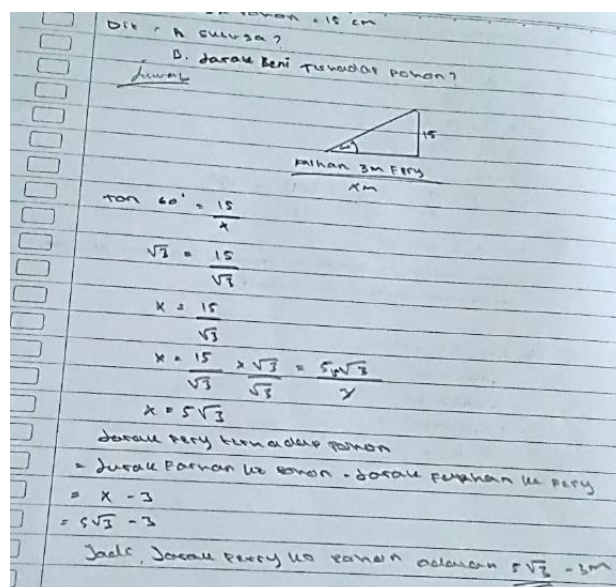 pohon = 15 cm
Dit : A sususa?
B. Jarak Beni terhadap pohon?
Jawab
15
60°
Farhan 3m Fery
xm
tan 60° = 15/x
√3 = 15/√3
x = 15/√3
x = 15/√3 x √3/√3 = 5√3
x = 5√3
Jarak Fery terhadap pohon
= Jarak Farhan ke pohon - Jarak Farhan ke Fery
= x - 3
= 5√3 - 3
Jadi, Jarak Ferry ke pohon adalah 5√3 - 3m